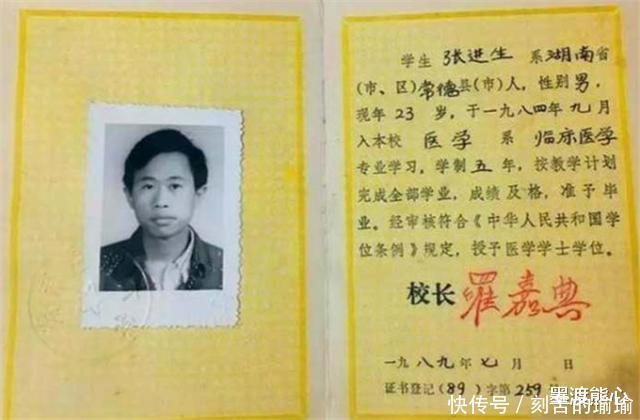 学生 张进生 系湖南省
(市、区)常德县(市)人，性别男，
现年23岁，于一九八四年九月
入本校 医学 系 临床医学
专业学习，学制五年，按教学计划
完成全部学业，成绩及格，准予毕
业。经审核符合《中华人民共和国学
位条例》规定，授予医学学士学位。
校长 罗嘉典
一九八九年七月 日
证书登记(89)字第259号
墨渡熊心
快传号／刻苦的瑜瑜